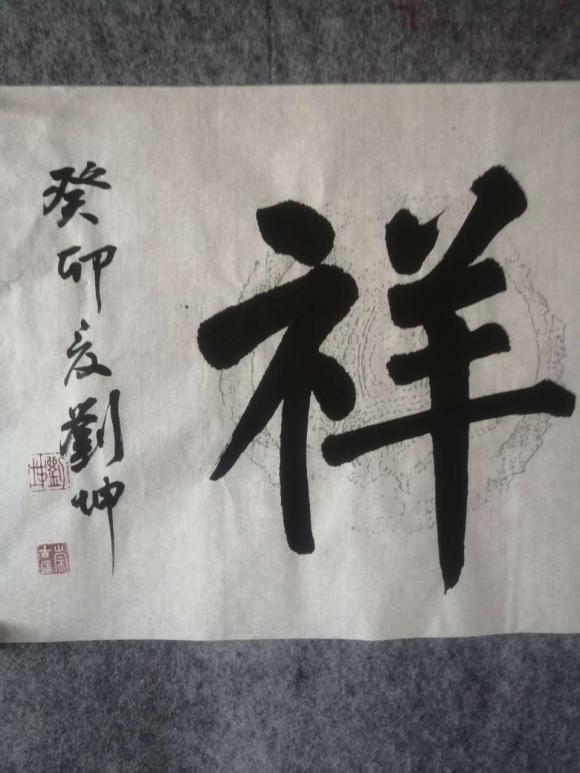 祥
癸卯夏劉坤
劉坤